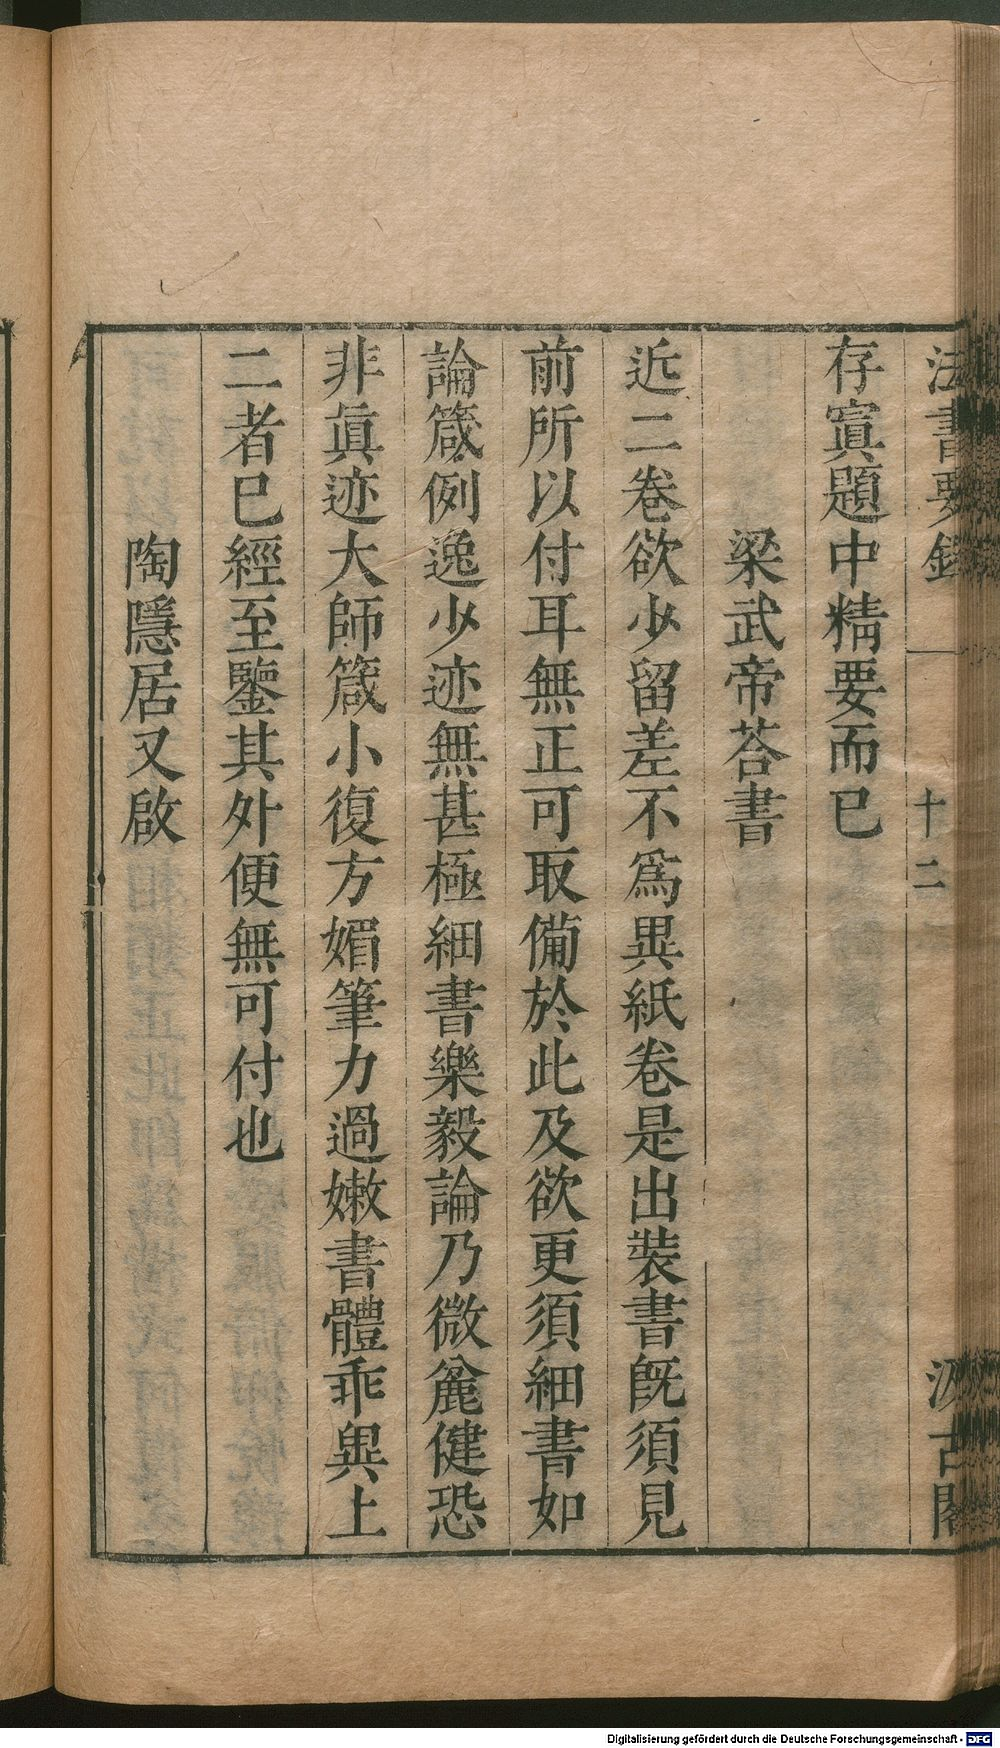 法書要錄 一 十二 汲古閣
存寘題中精要而已
梁武帝荅書
近二卷欲少留差不爲異紙卷是出裝書旣須見
前所以付耳無正可取備於此及欲更須細書如
論箴例逸少迹無甚極細書樂毅論乃微麄健恐
非眞迹大師箴小復方媚筆力過嫩書體乖異上
二者已經至鑒其外便無可付也
陶隱居又啟
Digitalisierung gefördert durch die Deutsche Forschungsgemeinschaft - DFG